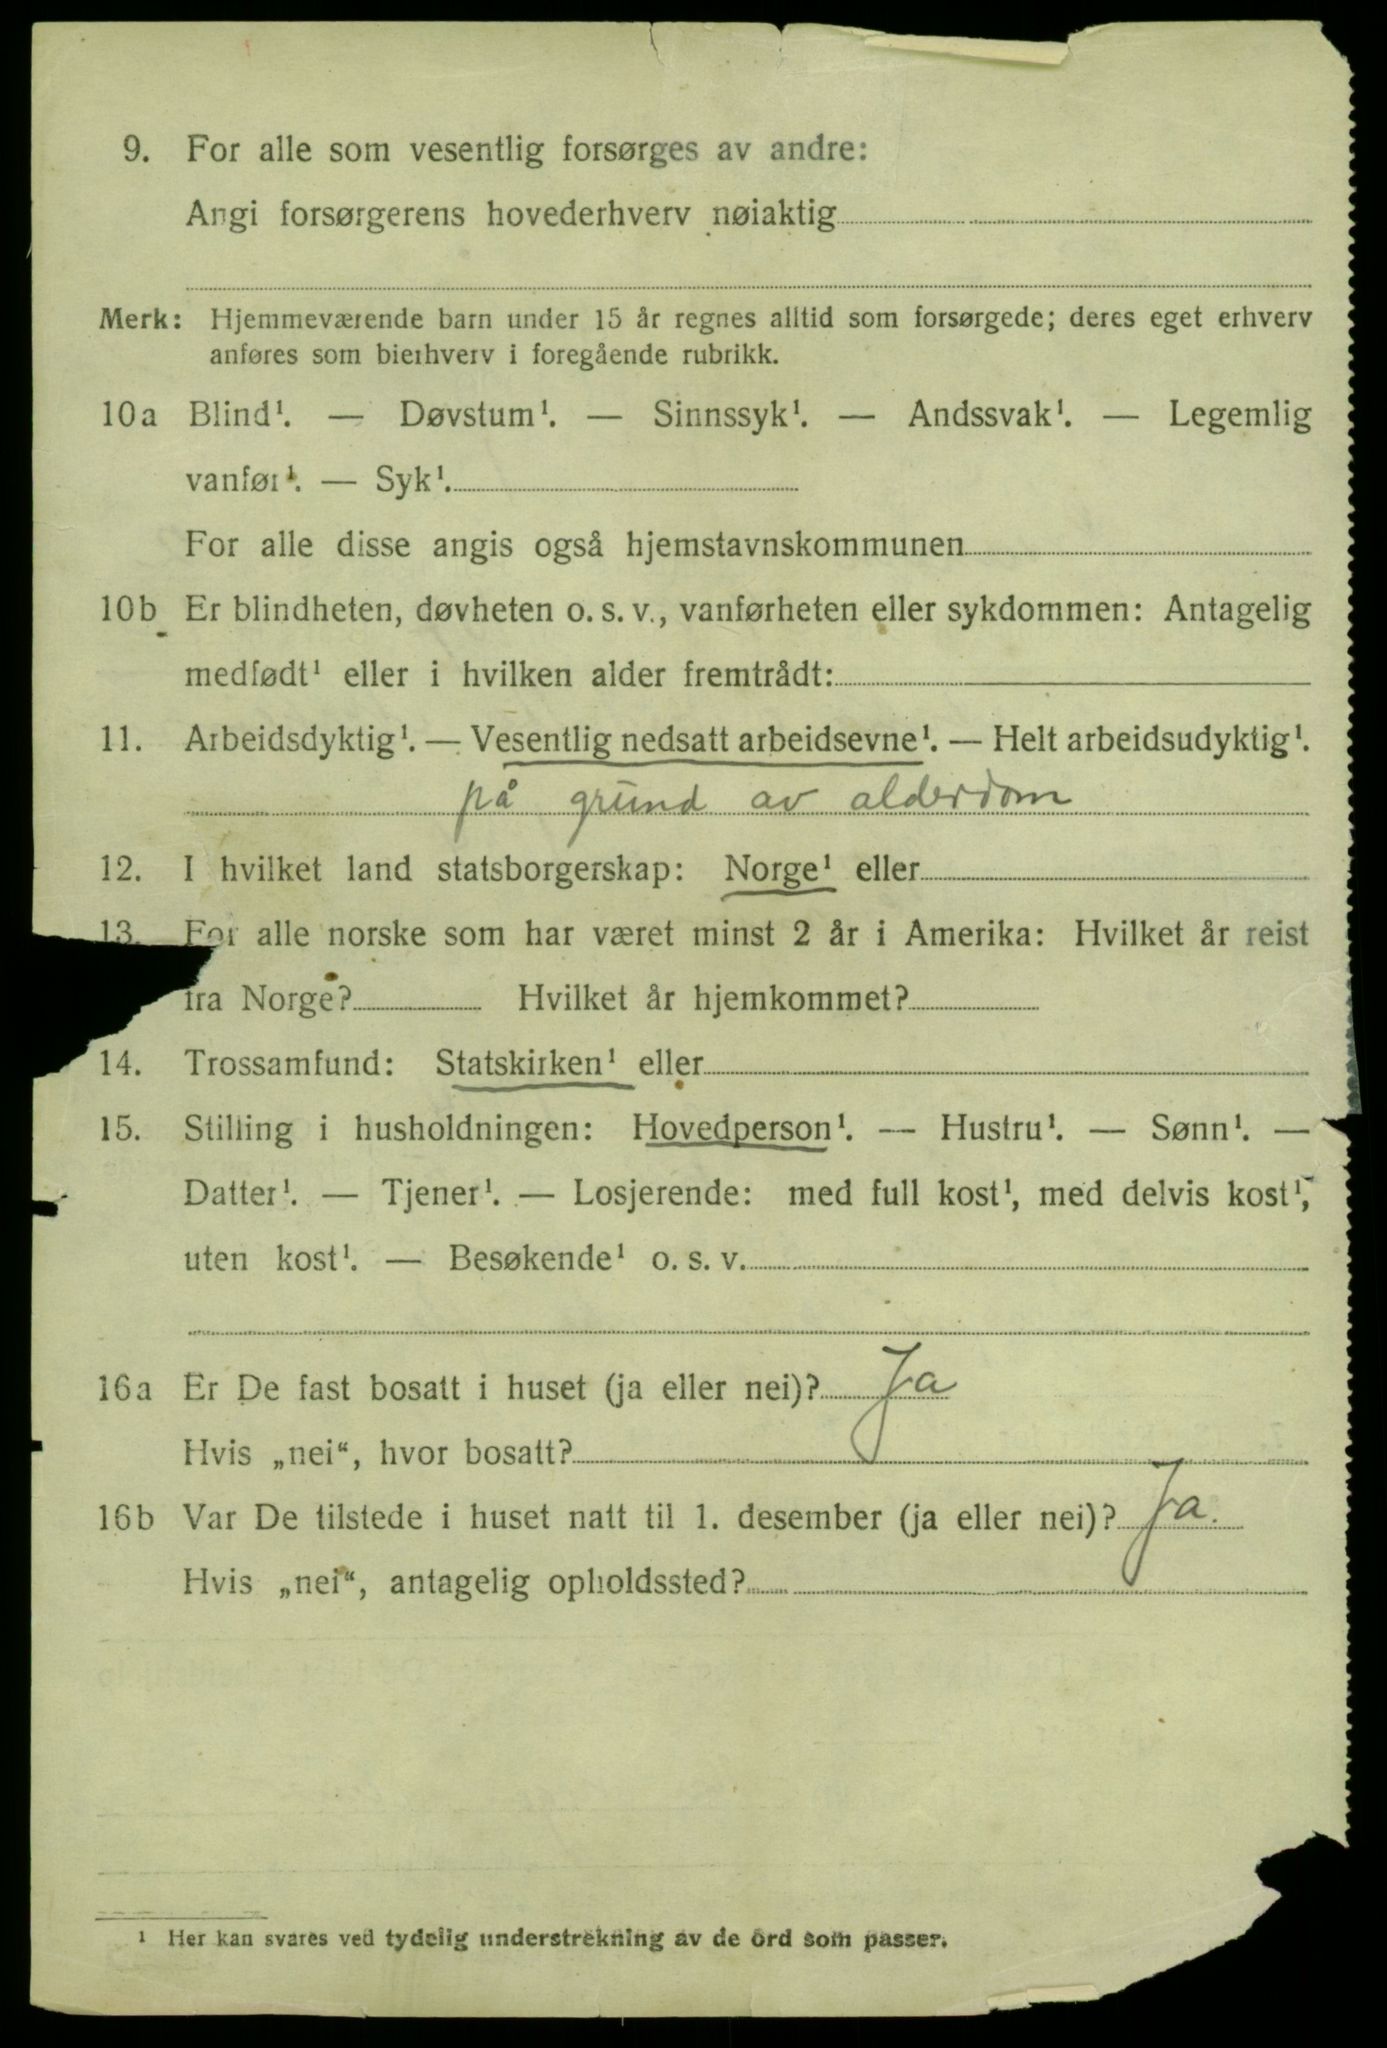 9. For alle som vesentlig forsørges av andre:
Angi forsørgerens hovederhverv nøiaktig
Merk: Hjemmeværende barn under 15 år regnes alltid som forsørgede; deres eget erhverv
anføres som bierhverv i foregående rubrikk.
10a Blind¹. — Døvstum¹. — Sinnssyk¹. — Andssvak¹. — Legemlig
vanfør¹. — Syk¹.
For alle disse angis også hjemstavnskommunen
10b Er blindheten, døvheten o. s. v., vanførheten eller sykdommen: Antagelig
medfødt¹ eller i hvilken alder fremtrådt:
11. Arbeidsdyktig¹. — Vesentlig nedsatt arbeidsevne¹. — Helt arbeidsudyktig¹.
på grund av alderdom
12. I hvilket land statsborgerskap: Norge¹ eller
13. For alle norske som har været minst 2 år i Amerika: Hvilket år reist
fra Norge? Hvilket år hjemkommet?
14. Trossamfund: Statskirken¹ eller
15. Stilling i husholdningen: Hovedperson¹. — Hustru¹. — Sønn¹. —
Datter¹. — Tjener¹. — Losjerende: med full kost¹, med delvis kost¹,
uten kost¹. — Besøkende¹ o. s. v.
16a Er De fast bosatt i huset (ja eller nei)? Ja
Hvis „nei“, hvor bosatt?
16b Var De tilstede i huset natt til 1. desember (ja eller nei)? Ja.
Hvis „nei“, antagelig opholdssted?
¹ Her kan svares ved tydelig understrekning av de ord som passer.